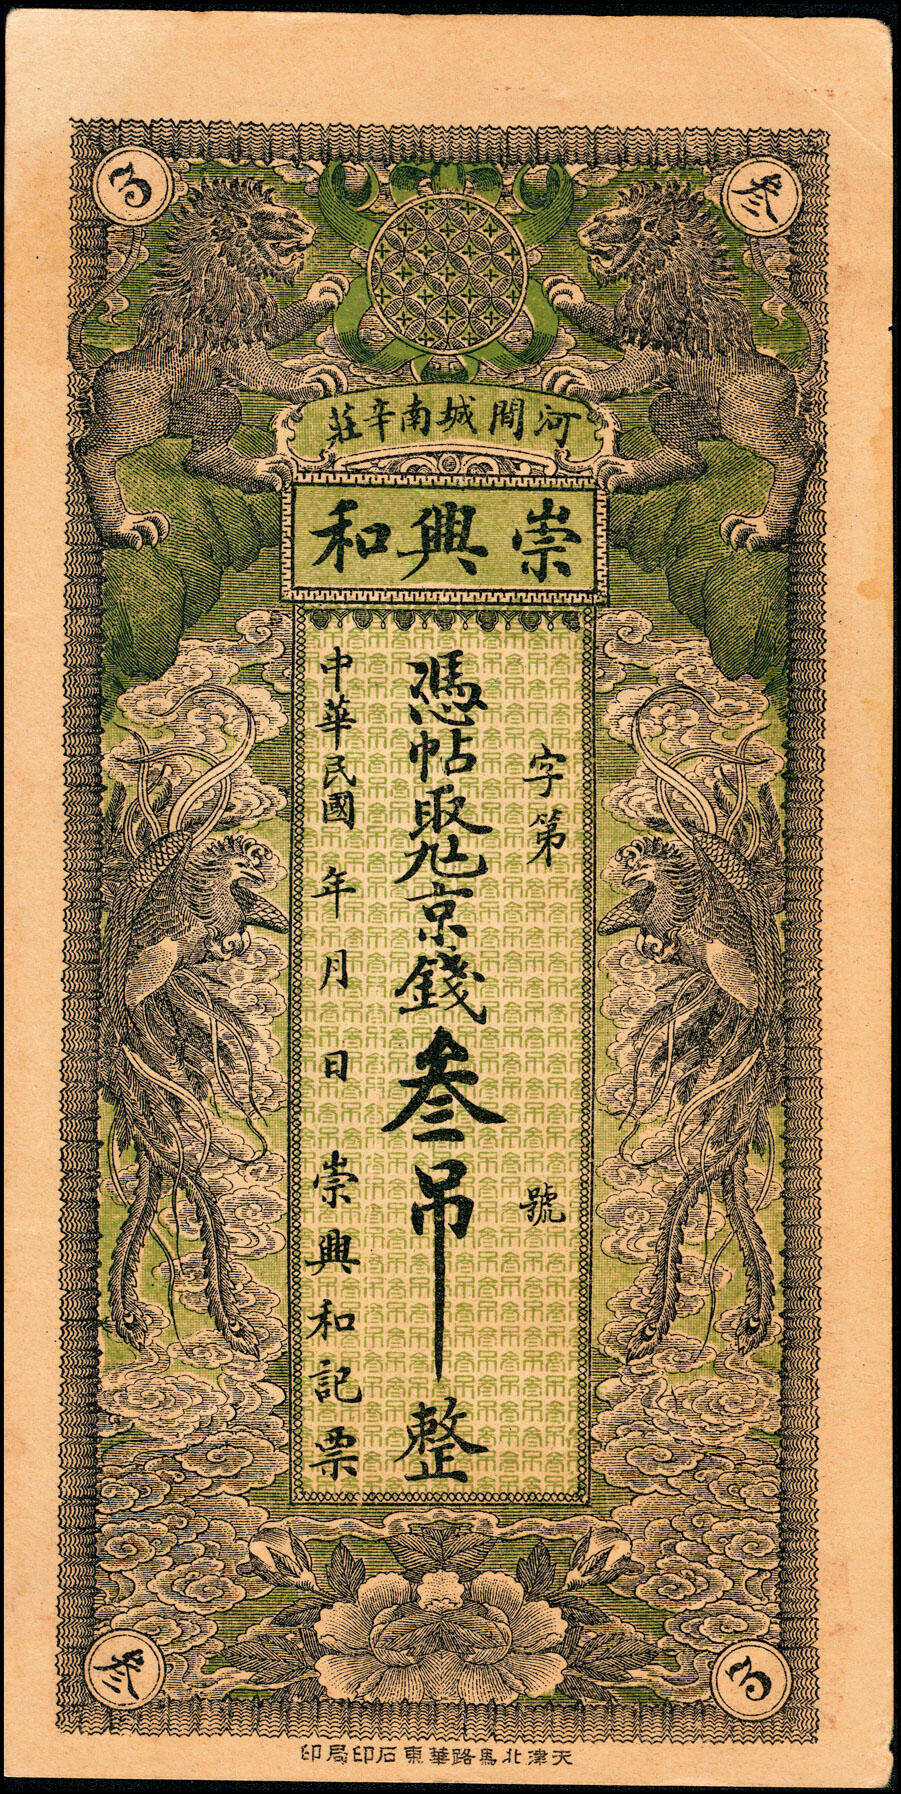 叁
河間城南辛莊
崇興和
字第 號
憑帖取兌京錢叁吊整
中華民國 年 月 日 崇興和記票
叁
天津北馬路華東石印局印